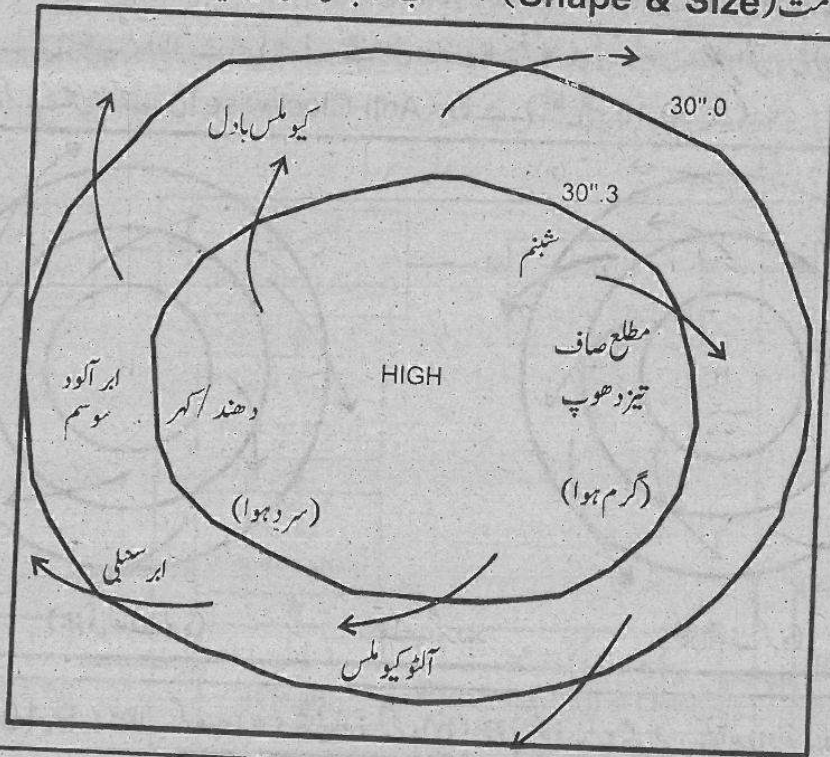 (Shape & Size)
30".0
کیوملس بادل
30".3
شبنم
مطلع صاف
تیز دھوپ
HIGH
ابر آلود
موسم
دھند / کہر
(گرم ہوا)
(سرد ہوا)
آلٹو کیوملس